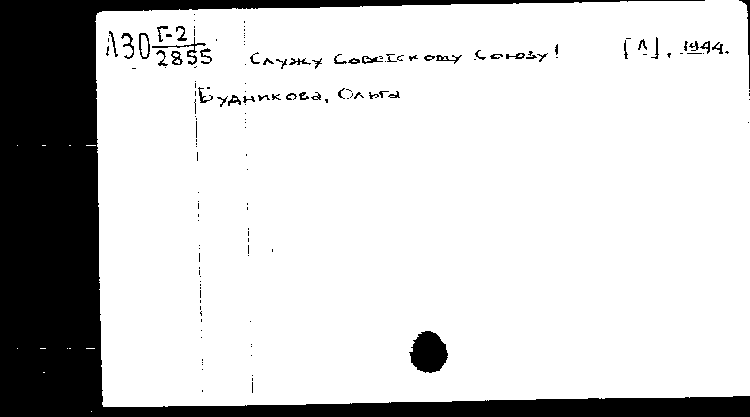 Л30 Г-2/2855 Служу Советскому Союзу! [Л], 1944.
Будникова, Ольга